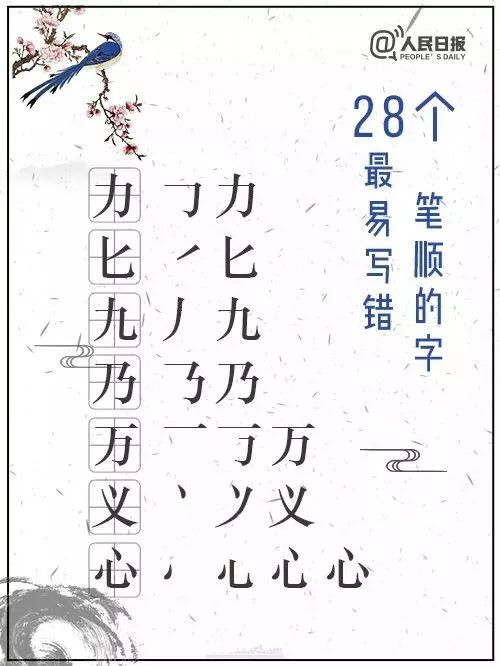 @人民日报
PEOPLE'S DAILY
28个
最易写错
笔顺的字
力 𠃌 力
匕 ㇒ 匕
九 丿 九
乃 𠄎 乃
万 一 丂 万
义 丶 ソ 义
心 丶 心 心